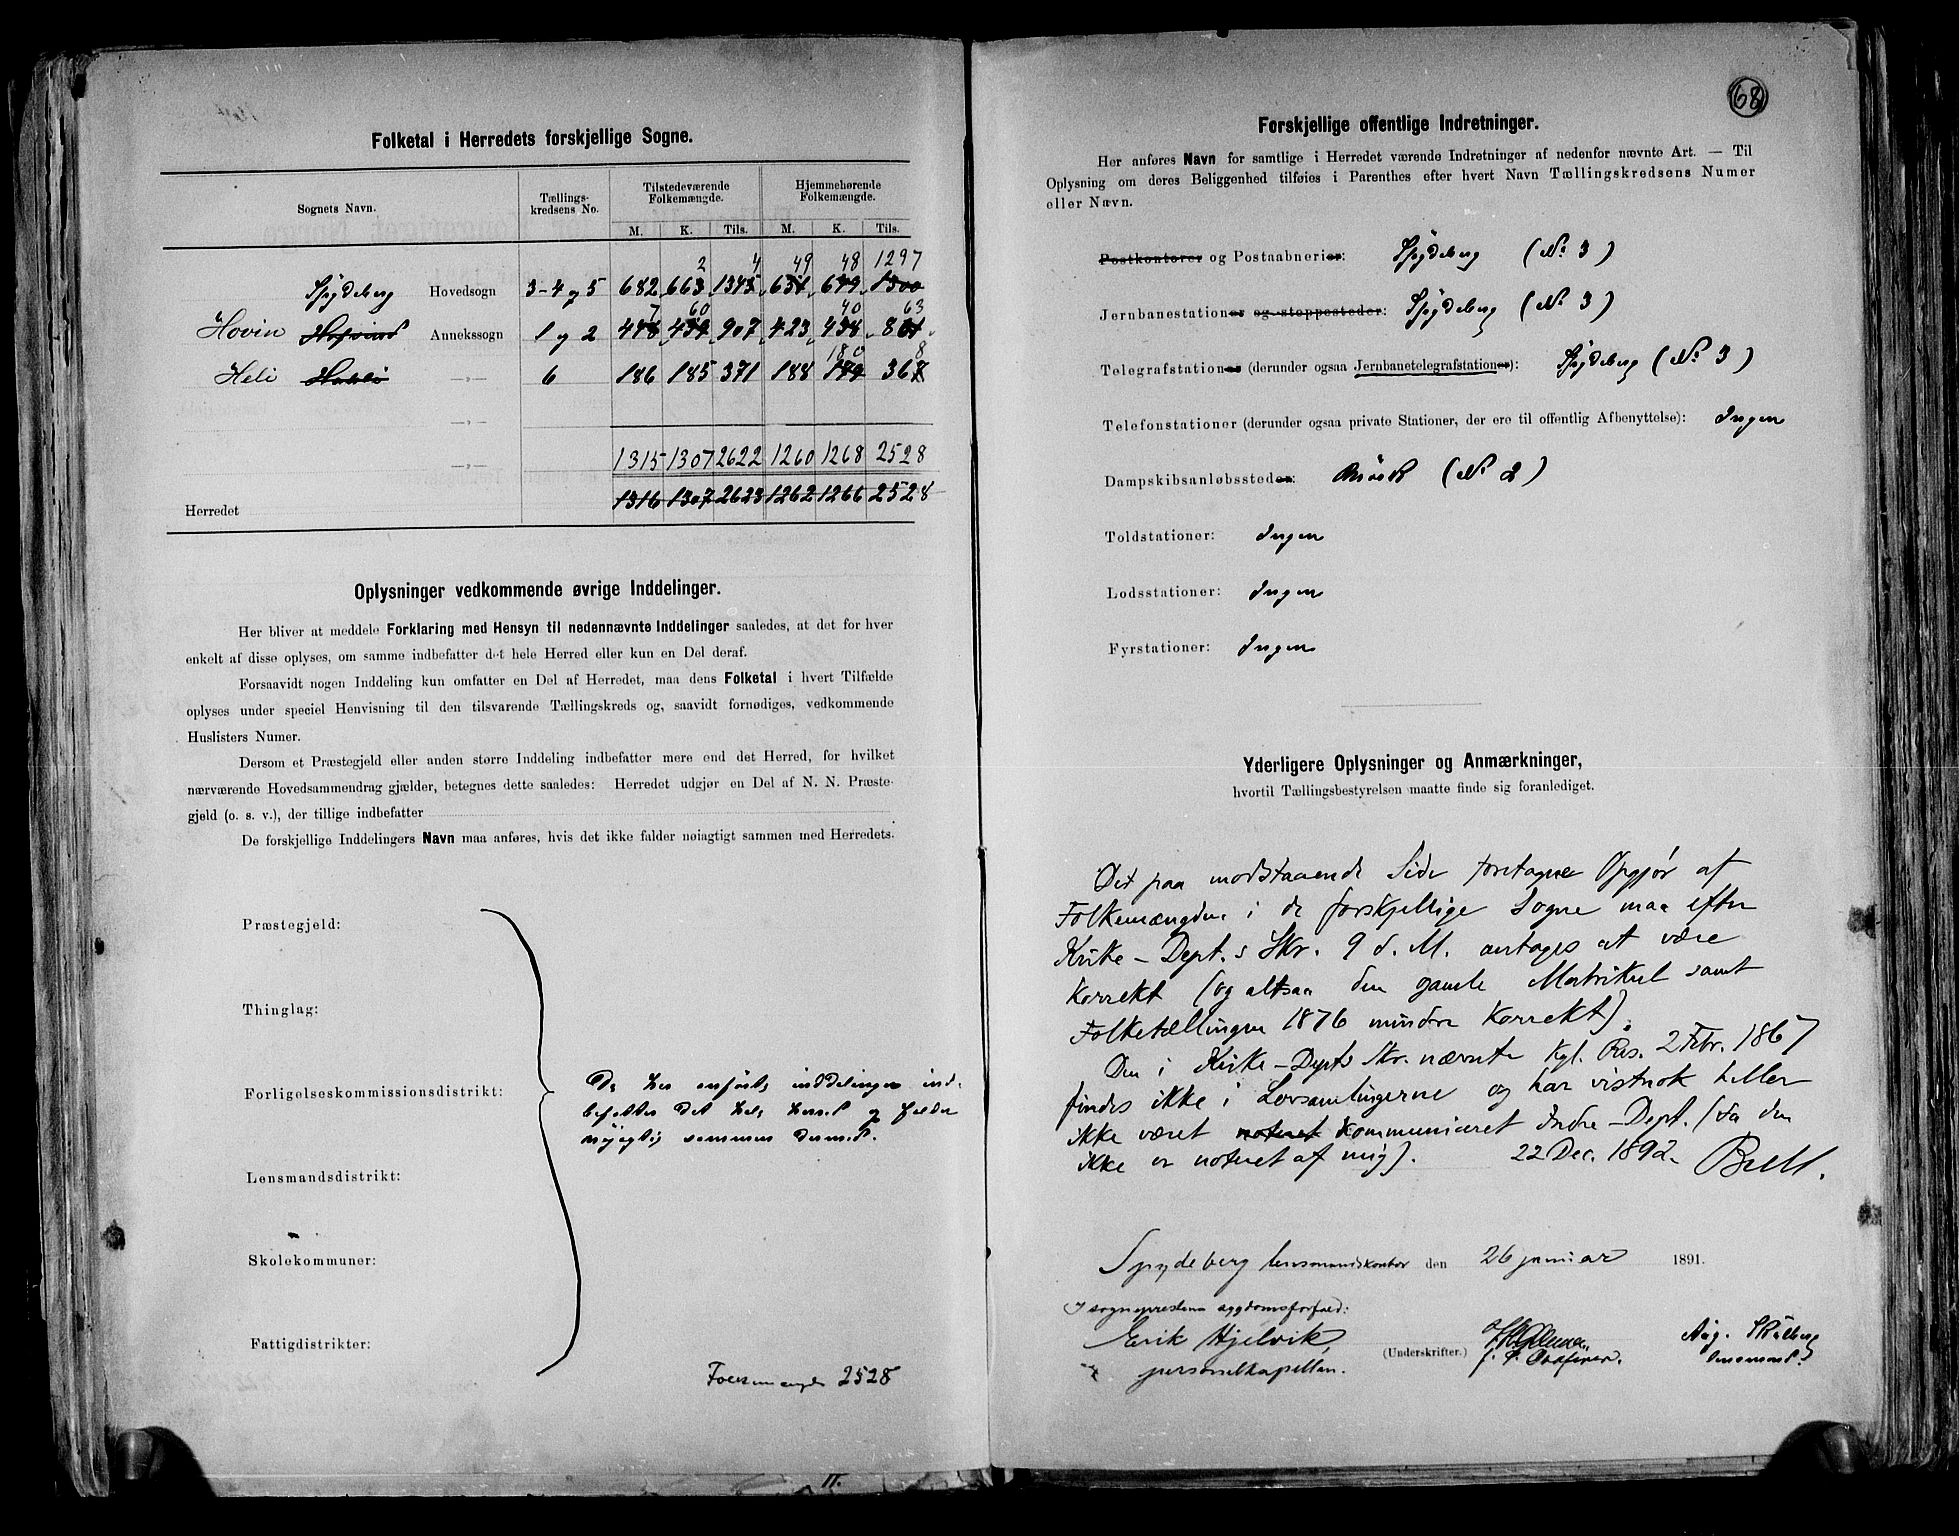 Folketal i Herredets forskjellige Sogne.
Sognets Navn.
Tællings-
kredsens No.
Tilstedeværende
Folkemængde.
Hjemmehørende
Folkemængde.
M. K. Tils. M. K. Tils.
2 4 49 48 1297
Spydeberg Hovedsogn 3-4 og 5 682 663 1345 651 649 1300
7 60 40 63
Hovin Annekssogn 1 og 2 448 459 907 423 438 861
180 8
Heli —„— 6 186 185 371 188 179 367
—„—
—„— 1315 1307 2622 1260 1268 2528
Herredet 1316 1307 2623 1262 1266 2528
Oplysninger vedkommende øvrige Inddelinger.
Her bliver at meddele Forklaring med Hensyn til nedennævnte Inddelinger saaledes, at det for hver
enkelt af disse oplyses, om samme indbefatter det hele Herred eller kun en Del deraf.
Forsaavidt nogen Inddeling kun omfatter en Del af Herredet, maa dens Folketal i hvert Tilfælde
oplyses under speciel Henvisning til den tilsvarende Tællingskreds og, saavidt fornødiges, vedkommende
Huslisters Numer.
Dersom et Præstegjeld eller anden større Inddeling indbefatter mere end det Herred, for hvilket
nærværende Hovedsammendrag gjælder, betegnes dette saaledes: Herredet udgjør en Del af N. N. Præste-
gjeld (o. s. v.), der tillige indbefatter
De forskjellige Inddelingers Navn maa anføres, hvis det ikke falder nøiagtigt sammen med Herredets.
Præstegjeld:
Thinglag:
Forligelseskommissionsdistrikt:
De her anførte inddelinger ind-
befatter det hele herred og falder
nøjagtig sammen dermed.
Lensmandsdistrikt:
Skolekommuner:
Fattigdistrikter:
Folkemængde 2528
68
Forskjellige offentlige Indretninger.
Her anføres Navn for samtlige i Herredet værende Indretninger af nedenfor nævnte Art. — Til
Oplysning om deres Beliggenhed tilføies i Parenthes efter hvert Navn Tællingskredsens Numer
eller Navn.
Postkontorer og Postaabnerier: Spydeberg (No 3)
Jernbanestationer og stoppesteder: Spydeberg (No 3)
Telegrafstationer (derunder ogsaa Jernbanetelegrafstationer): Spydeberg (No 3)
Telefonstationer (derunder ogsaa private Stationer, der ere til offentlig Afbenyttelse): Ingen
Dampskibsanløbssteder: (No 2)
Toldstationer: Ingen
Lodsstationer: Ingen
Fyrstationer: Ingen
Yderligere Oplysninger og Anmærkninger,
hvortil Tællingsbestyrelsen maatte finde sig foranlediget.
Det paa modstaaende Side foretagne Opgjør af
Folkemængden i de forskjellige Sogne maa efter
Kirke-Dept.s Skr. 9 d. M. antages at være
korrekt (og altsaa den gamle Matrikul samt
Folketællingen 1876 mindre korrekt).
Den i Kirke-Depts Skr. nævnte kgl. Res. 2 Febr. 1867
findes ikke i Lovsamlingerne og har vistnok heller
ikke været noteret kommuniceret Indre-Dept. (da den
ikke er noteret af mig). 22 Dec. 1892.
Spydeberg lensmandskontor den 26 januar 1891.
I sogneprestens sygdomsforfald:
Erik Hjelvik,
personelkapellan.
(Underskrifter.)
Aug. Skulberg
lensmand.
II.